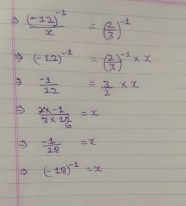 ⇒ (-12)⁻¹/x = (2/3)⁻¹
⇒ (-12)⁻¹ = (2/3)⁻¹ × x
⇒ -1/12 = 3/2 × x
⇒ 2×-1/3×12 6 = x
⇒ -1/18 = x
⇒ (-18)⁻¹ = x